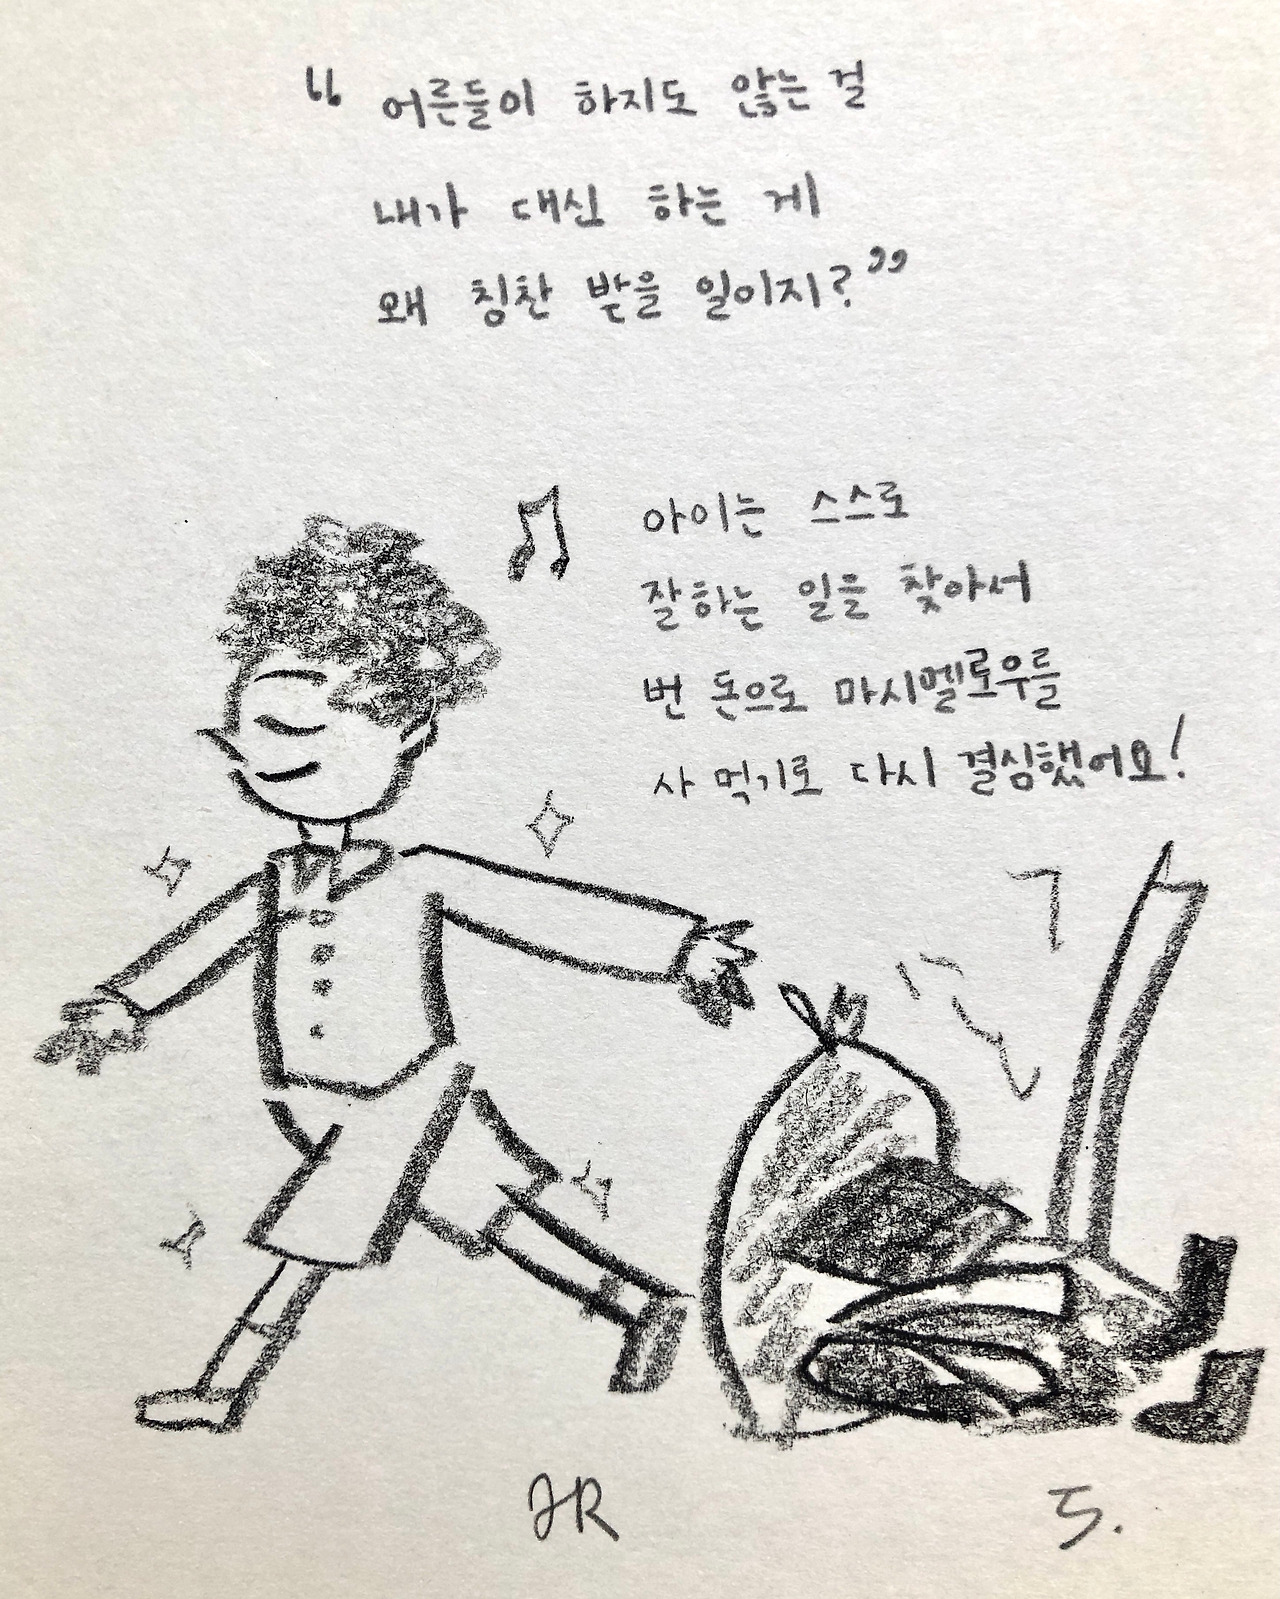 “ 어른들이 하지도 않는 걸
내가 대신 하는 게
왜 칭찬 받을 일이지? ”
아이는 스스로
잘하는 일을 찾아서
번 돈으로 마시멜로우를
사 먹기로 다시 결심했어요!
JR
5.